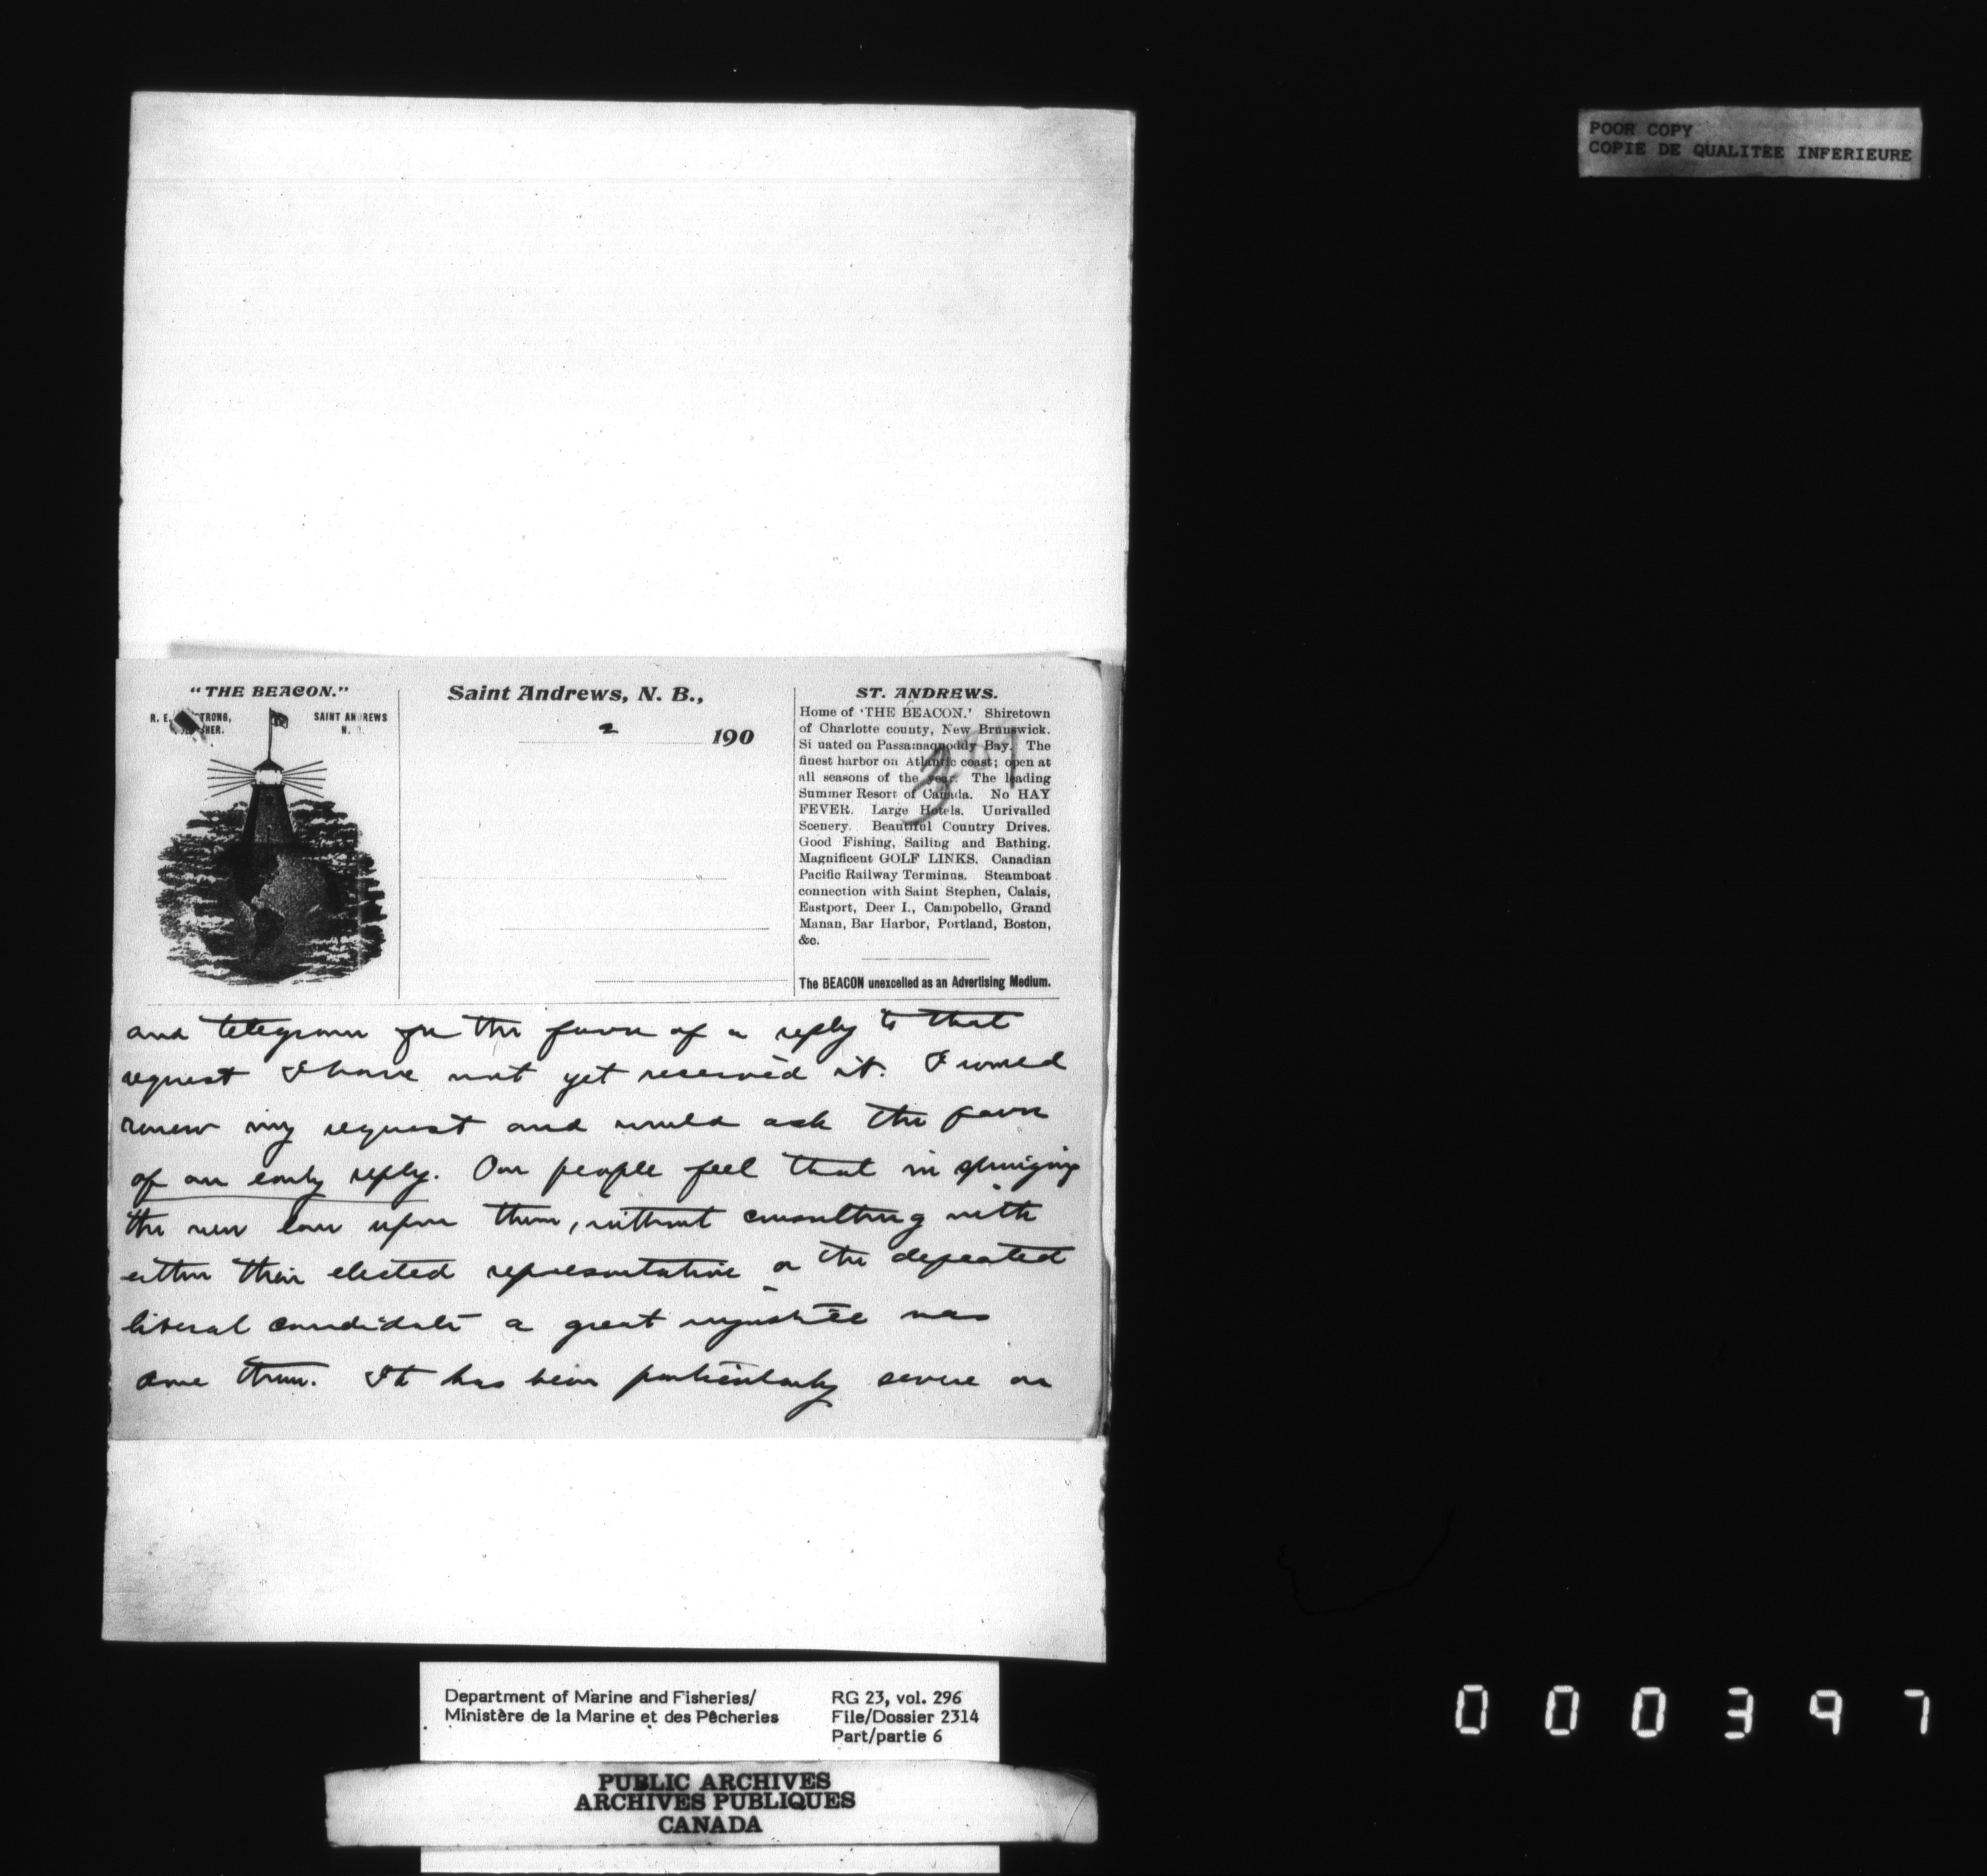 POOR COPY
COPIE DE QUALITEE INFERIEURE
"THE BEACON."
R. E. TRONG,
HER.
SAINT ANDREWS
N.
Saint Andrews, N. B.,
2 190
ST. ANDREWS.
Home of 'THE BEACON.' Shiretown
of Charlotte county, New Brunswick.
Si uated on Passamaquoddy Bay. The
finest harbor on Atlantic coast; open at
all seasons of the year. The leading
Summer Resort of Canada. No HAY
FEVER. Large Hotels. Unrivalled
Scenery. Beautiful Country Drives.
Good Fishing, Sailing and Bathing.
Magnificent GOLF LINKS. Canadian
Pacific Railway Terminus. Steamboat
connection with Saint Stephen, Calais,
Eastport, Deer I., Campobello, Grand
Manan, Bar Harbor, Portland, Boston,
&c.
The BEACON unexcelled as an Advertising Medium.
397
and telegram for the favor of a reply to that
request I have not yet received it. I would
renew my request and would ask the favor
of an early reply. Our people feel that in springing
the new law upon them, without consulting with
either their elected representative or the defeated
liberal candidate a great injustice was
done them. It has been particularly severe on
Department of Marine and Fisheries/
Ministère de la Marine et des Pêcheries
RG 23, vol. 296
File/Dossier 2314
Part/partie 6
PUBLIC ARCHIVES
ARCHIVES PUBLIQUES
CANADA
000397